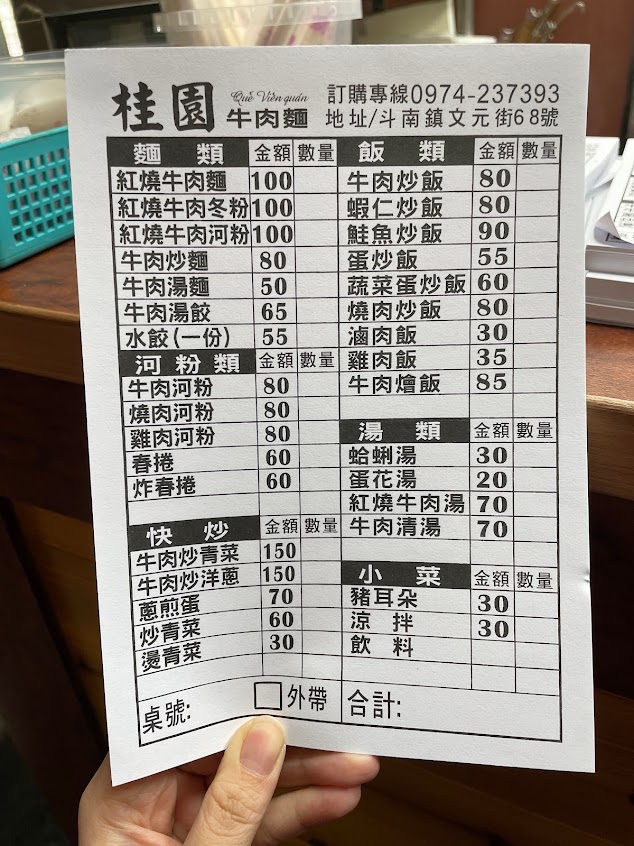 桂園 Quế Viên quán 牛肉麵
訂購專線0974-237393
地址/斗南鎮文元街68號
麵類 金額 數量
紅燒牛肉麵 100
紅燒牛肉冬粉 100
紅燒牛肉河粉 100
牛肉炒麵 80
牛肉湯麵 50
牛肉湯餃 65
水餃(一份) 55
河粉類 金額 數量
牛肉河粉 80
燒肉河粉 80
雞肉河粉 80
春捲 60
炸春捲 60
快炒 金額 數量
牛肉炒青菜 150
牛肉炒洋蔥 150
蔥煎蛋 70
炒青菜 60
燙青菜 30
桌號: 外帶
飯類 金額 數量
牛肉炒飯 80
蝦仁炒飯 80
鮭魚炒飯 90
蛋炒飯 55
蔬菜蛋炒飯 60
燒肉炒飯 80
滷肉飯 30
雞肉飯 35
牛肉燴飯 85
湯類 金額 數量
蛤蜊湯 30
蛋花湯 20
紅燒牛肉湯 70
牛肉清湯 70
小菜 金額 數量
豬耳朵 30
涼拌 30
飲料
合計: